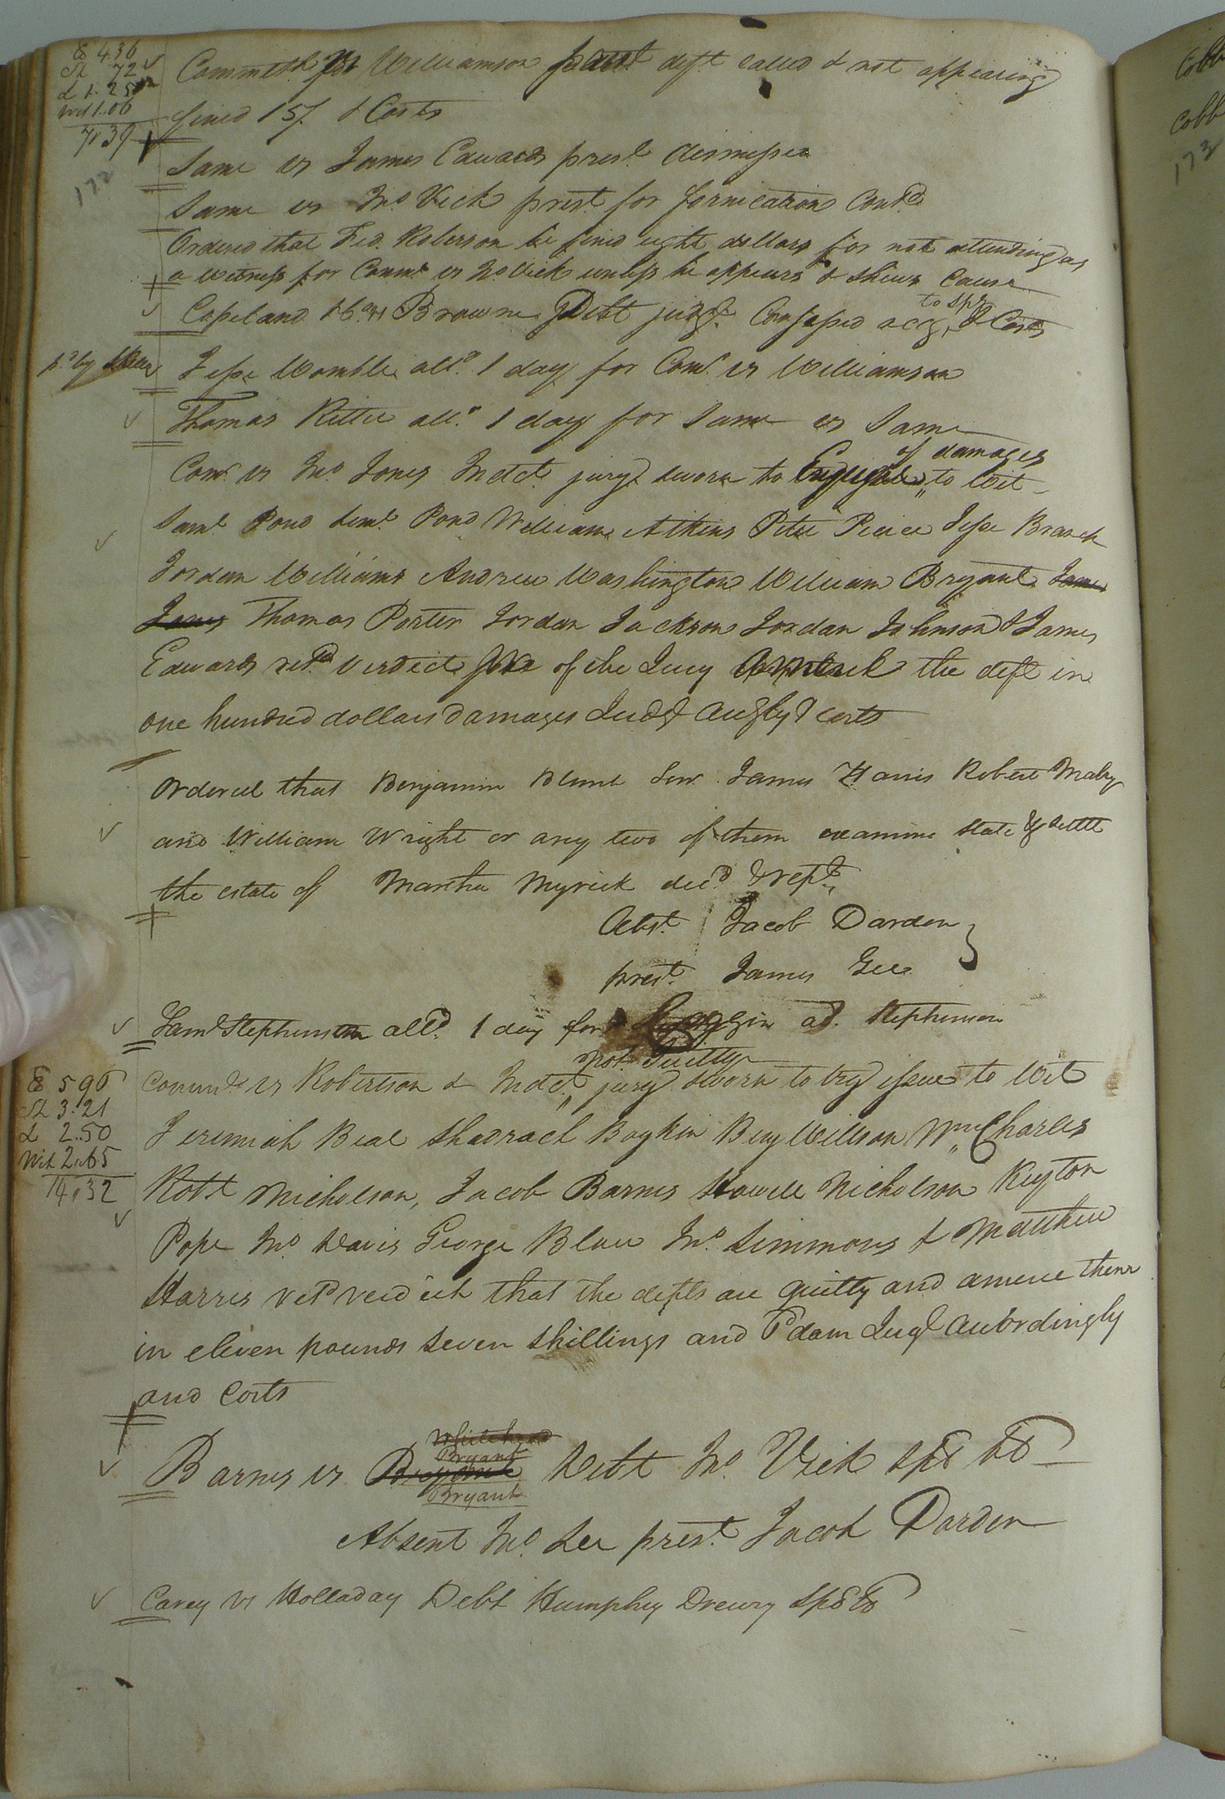 E 4.36
Sh 72
L 1.25
Wit 1.06
7.39
172
Commth vs Williamson prest deft called & not appearing
fined 15/. & Costs
Same vs James Edwards prest. dismissed
Same vs Jno. Vick prest. for fornication Contd
Ordered that Fed. Roberson be fined eight dollars for not attending as
a witness for Comm. vs Jno Vick unless he appears & shews Cause
to spe
Copeland vs Browne Debt judgt. Confessed accg. & Costs
pd. by
Jesse Womble alld. 1 day for Com. vs Williamson
Thomas Kittle alld. 1 day for Same vs Same
of damages
Com. vs Jno. Jones Indct. jury sworn to Enquire to Wit
Saml. Pond Saml. Pond William Atkins Peter Peirce Jesse Branch
Jordan Williams Andrew Washington William Bryant James
Jones Thomas Porter Jordan Jackson Jordan Johnson & James
Edwards retd. verdict We of the Jury the deft in
one hundred dollars damages Judgt accgly & costs
Ordered that Benjamin Blunt Senr. James Harris Robert Mabry
and William Wright or any two of them examine state & settle
the estate of Martha Myrick decd. & rept.
Abst. Jacob Darden
prest. James Gee
Saml. Stephenson alld. 1 day for ad. Stephenson
E 5.96
Sh 3.21
L 2.50
Wit 2.65
14.32
not Guilty
Commth vs Robertson & Indct. jury sworn to try issue to Wit
Jeremiah Beal Shadrach Boykin Benj Willson Wm. Charles
Robt Nicholson, Jacob Barnes Howell Nicholson
Pope Jno. Davis George Blow Jno. Simmons & Matthew
Harris retd verdict that the defts are guilty and amerce them
in eleven pounds seven shillings and dam Jugt accordingly
and Costs
Whitehead
Bryant
Barnes vs Debt Jno. Vick spl bl
Bryant
Absent Jno. Lee prest. Jacob Darden
Carey vs Holladay Debt Humphry Drewry
Cobb
Cobb
173